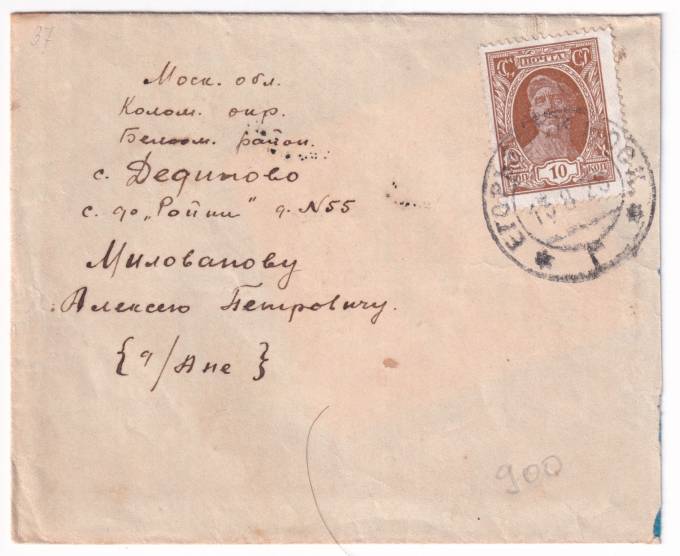 37
Моск. обл.
Колом. окр.
Белоом. район.
с. Дединово
с. до „Ройки" д. N55
Миловановy
Алексею Петровичу.
{д/Ане}
ПОЧТА
10
КОП
900